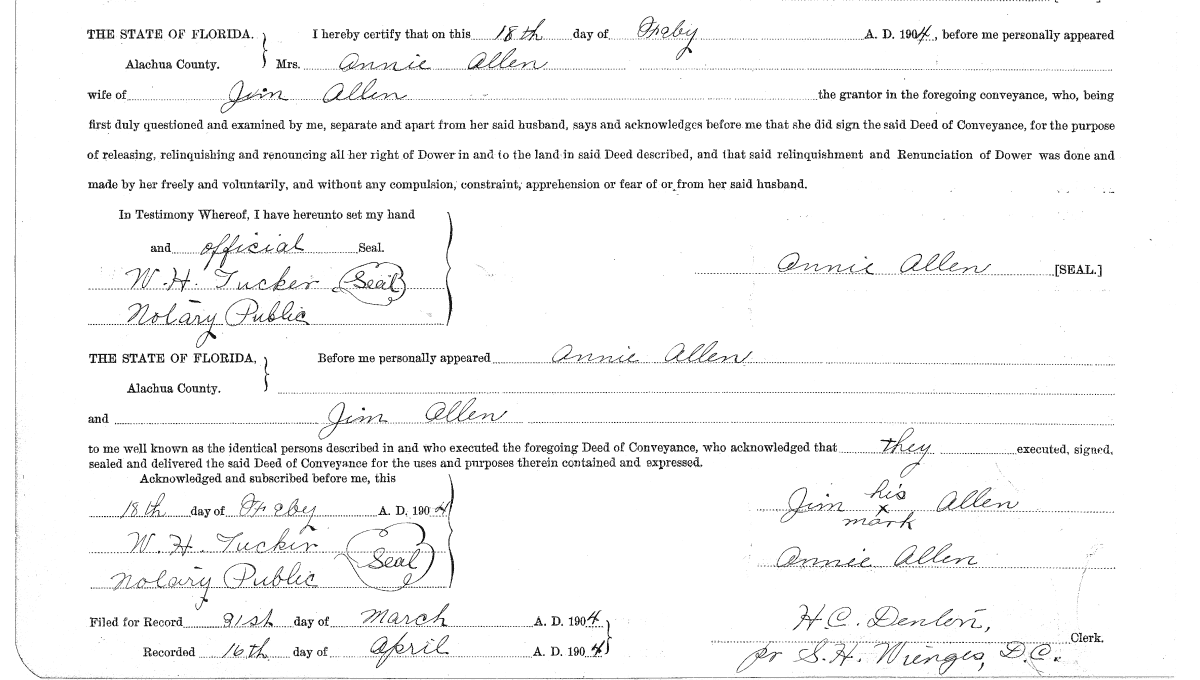 THE STATE OF FLORIDA. I hereby certify that on this 18th day of Feby A. D. 1904, before me personally appeared
Alachua County. Mrs. Annie Allen
wife of Jim Allen the grantor in the foregoing conveyance, who, being
first duly questioned and examined by me, separate and apart from her said husband, says and acknowledges before me that she did sign the said Deed of Conveyance, for the purpose
of releasing, relinquishing and renouncing all her right of Dower in and to the land in said Deed described, and that said relinquishment and Renunciation of Dower was done and
made by her freely and voluntarily, and without any compulsion, constraint, apprehension or fear of or from her said husband.
In Testimony Whereof, I have hereunto set my hand
and official Seal.
W. H. Tucker Seal
Annie Allen [SEAL.]
Notary Public
THE STATE OF FLORIDA, Before me personally appeared Annie Allen
Alachua County.
and Jim Allen
to me well known as the identical persons described in and who executed the foregoing Deed of Conveyance, who acknowledged that they executed, signed,
sealed and delivered the said Deed of Conveyance for the uses and purposes therein contained and expressed.
Acknowledged and subscribed before me, this
18th day of Feby A. D. 1904
W. H. Tucker Seal
Notary Public
Jim his x mark Allen
Annie Allen
Filed for Record 31st day of March A. D. 1904
Recorded 16th day of April A. D. 1904
H. C. Denton, Clerk.
pr S. H. Wienges, D. C.